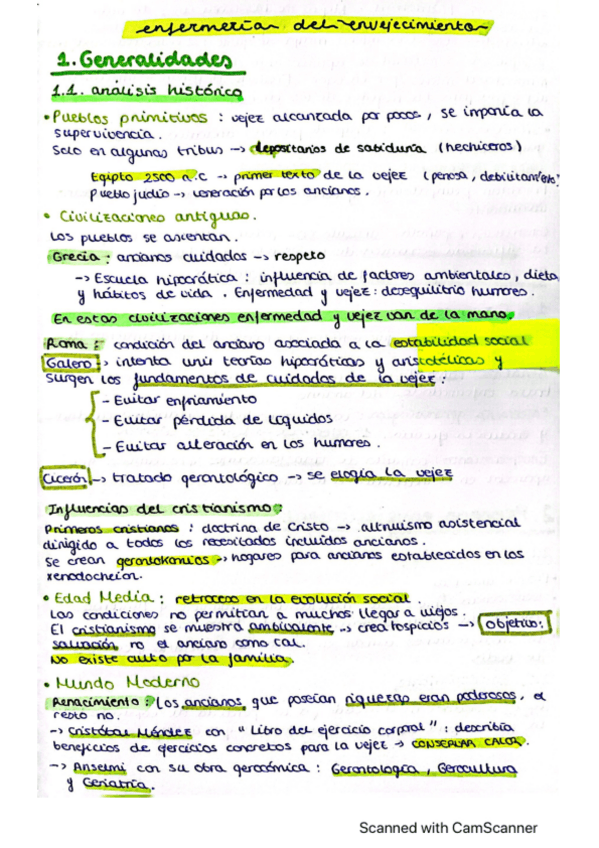 enfermería del envejecimiento
1. Generalidades
1.1. análisis histórico
• Pueblos primitivos : vejez alcanzada por pocos, se imponía la
supervivencia.
Solo en algunas tribus → depositarios de sabiduría (hechiceros)
Egipto 2500 a.C → primer texto de la vejez (penosa, debilitamiento)
Pueblo judío → veneración por los ancianos.
• Civilizaciones antiguas.
Los pueblos se asientan.
Grecia : ancianos cuidados → respeto
→ Escuela hipocrática : influencia de factores ambientales, dieta
y hábitos de vida. Enfermedad y vejez : desequilibrio humores.
En estas civilizaciones enfermedad y vejez van de la mano.
Roma : condición del anciano asociada a la estabilidad social
Galeno → intenta unir teorías hipocráticas y aristotélicas y
surgen los fundamentos de cuidados de la vejez :
- Evitar enfriamiento
- Evitar pérdida de líquidos
- Evitar alteración en los humores
Cicerón → tratado gerontológico → se elogia la vejez
Influencias del cristianismo :
Primeros cristianos : doctrina de Cristo → altruismo asistencial
dirigido a todos los necesitados incluidos ancianos.
Se crean gerontokomios → hogares para ancianos establecidos en los
xenodocheion.
• Edad Media : retroceso en la evolución social.
Las condiciones no permitían a muchos llegar a viejos.
El cristianismo se muestra ambivalente → crea hospicios → Objetivo:
salvación no el anciano como tal.
No existe culto por la familia.
• Mundo Moderno
Renacimiento : Los ancianos que poseían riquezas eran poderosos, el
resto no.
→ Cristóbal Méndez con "Libro del ejercicio corporal" : describía
beneficios de ejercicios concretos para la vejez → CONSERVAR CALOR.
→ Anselmi con su obra gerocómica : Gerontología, Gerocultura
y Geriatría.
Scanned with CamScanner